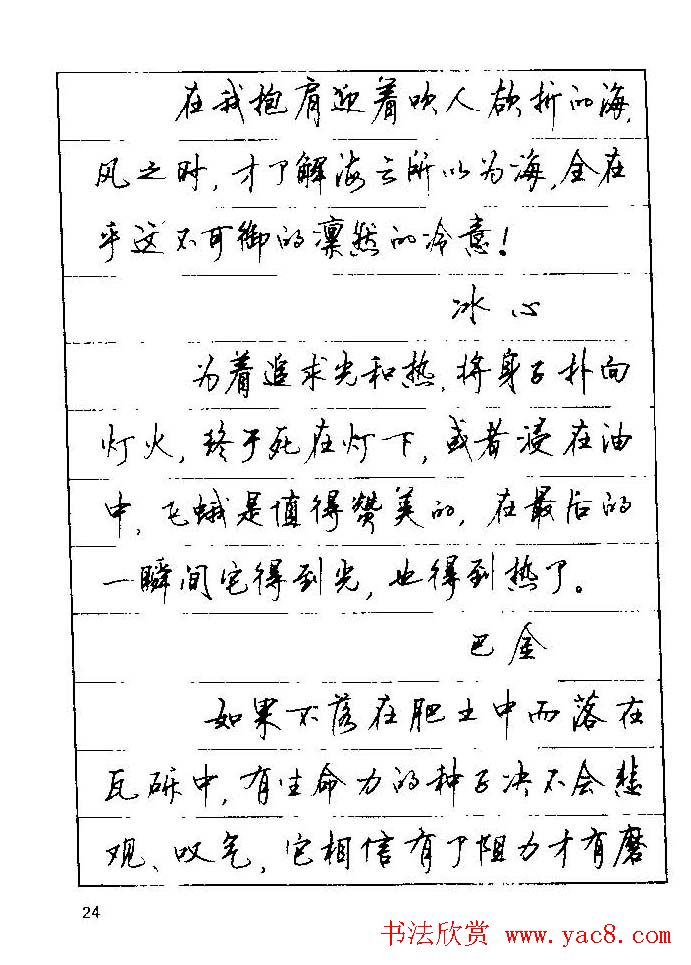 在我抱肩迎着吹人欲折的海
风之时，才了解海之所以为海，全在
乎这不可御的凛然的冷意！
冰心
为着追求光和热，将身子扑向
灯火，终于死在灯下，或者浸在油
中，飞蛾是值得赞美的，在最后的
一瞬间它得到光，也得到热了。
巴金
如果不落在肥土中而落在
瓦砾中，有生命力的种子决不会悲
观、叹气，它相信有了阻力才有磨
24
书法欣赏 www.yac8.com